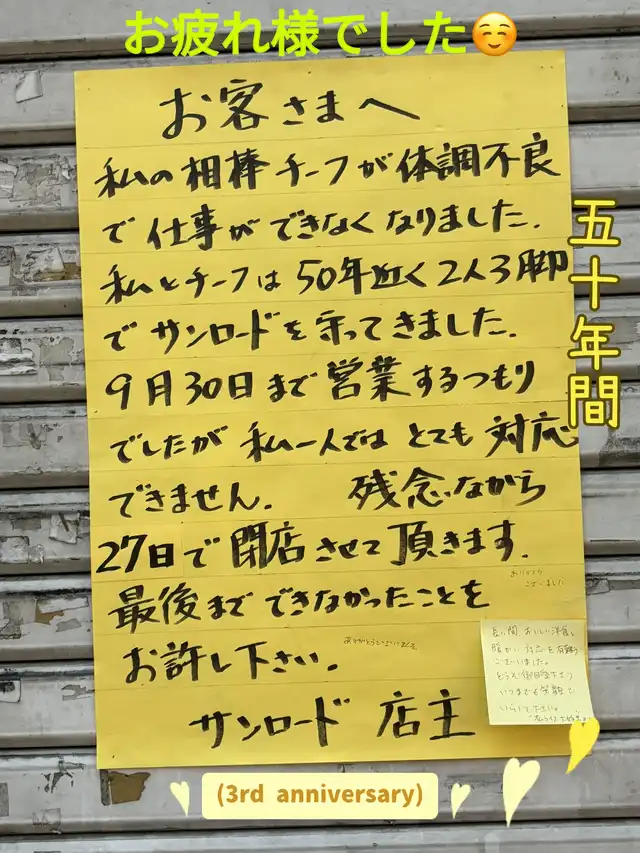 お疲れ様でした☺️
お客さまへ
私の相棒チーフが体調不良
で仕事ができなくなりました.
私とチーフは50年近く2人3脚
でサンロードを守ってきました.
9月30日まで営業するつもり
でしたが私一人ではとても対応
できません. 残念ながら
27日で閉店させて頂きます.
最後までできなかったことを
お許し下さい.
サンロード 店主
五十年間
ありがとう
ございました
ありがとうございました
長い間おいしい洋食、
暖かい対応を有難う
ございました。
どうぞ御自愛下さり
いつまでも笑顔で
いらして下さい。
(3rd anniversary)